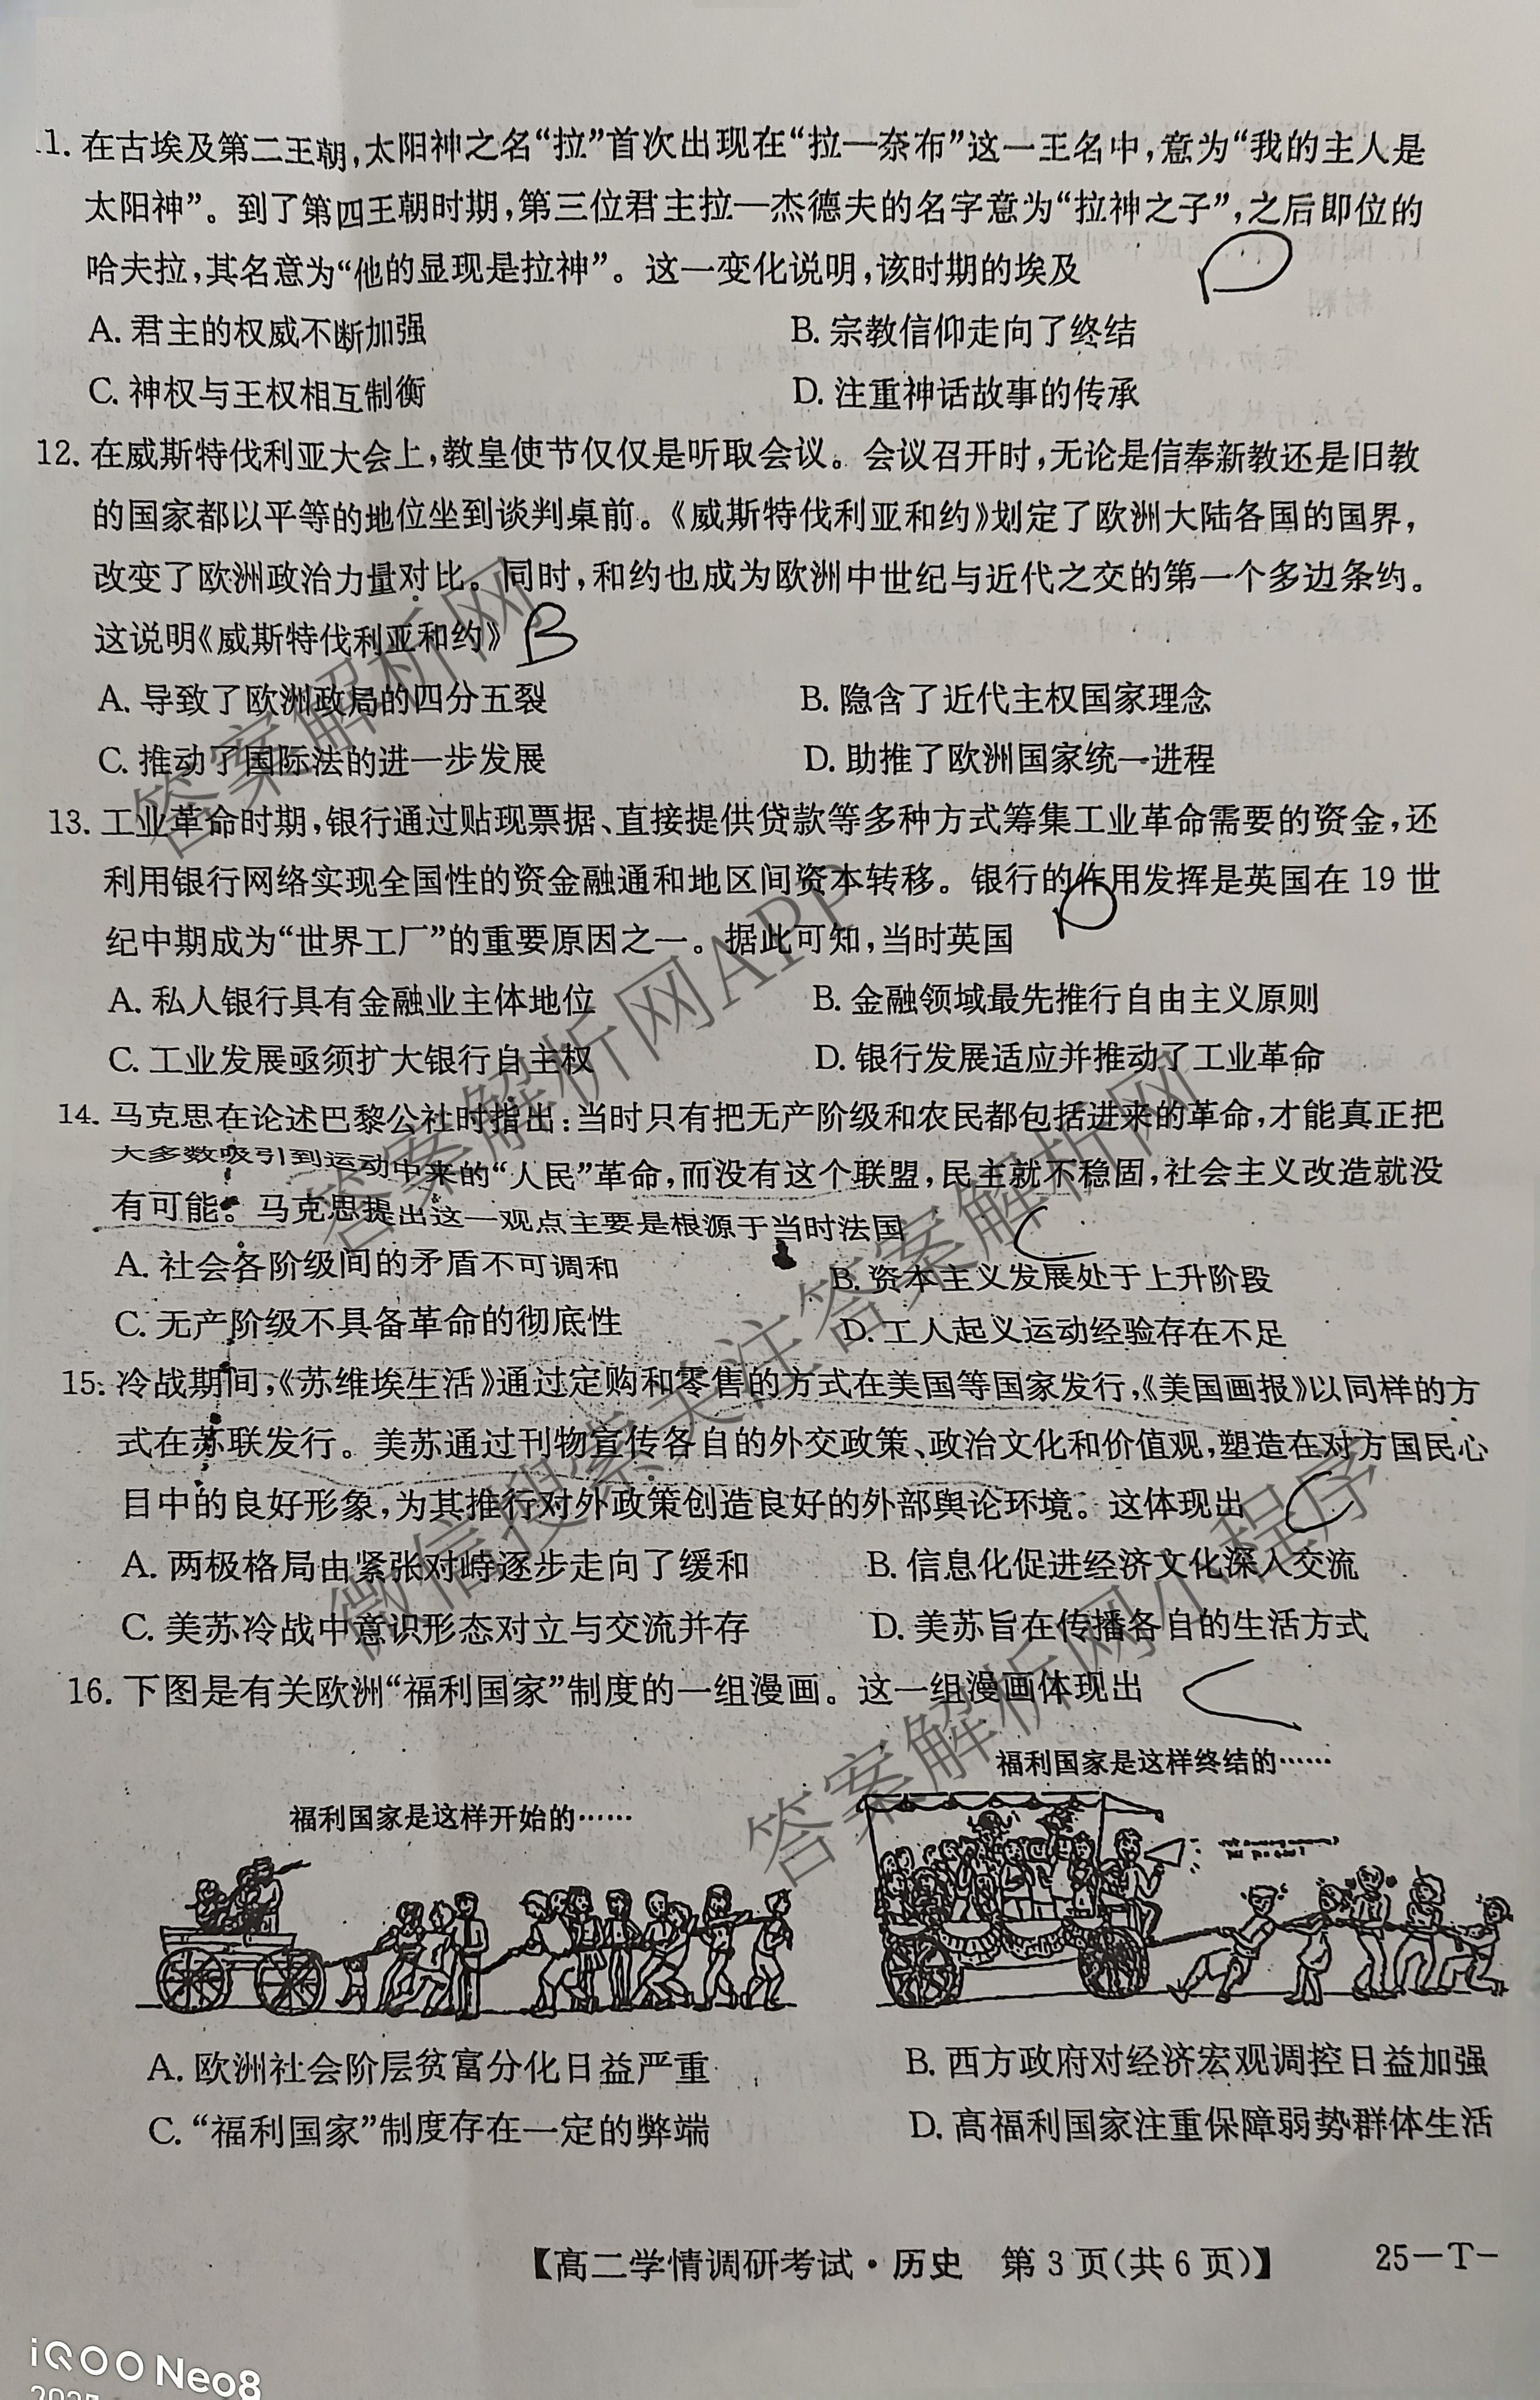 1. 在古埃及第二王朝,太阳神之名“拉”首次出现在“拉—奈布”这一王名中,意为“我的主人是
太阳神”。到了第四王朝时期,第三位君主拉—杰德夫的名字意为“拉神之子”,之后即位的
哈夫拉,其名意为“他的显现是拉神”。这一变化说明,该时期的埃及
D
A. 君主的权威不断加强
B. 宗教信仰走向了终结
C. 神权与王权相互制衡
D. 注重神话故事的传承
12. 在威斯特伐利亚大会上,教皇使节仅仅是听取会议。会议召开时,无论是信奉新教还是旧教
的国家都以平等的地位坐到谈判桌前。《威斯特伐利亚和约》划定了欧洲大陆各国的国界,
改变了欧洲政治力量对比。同时,和约也成为欧洲中世纪与近代之交的第一个多边条约。
这说明《威斯特伐利亚和约》 B
A. 导致了欧洲政局的四分五裂
B. 隐含了近代主权国家理念
C. 推动了国际法的进一步发展
D. 助推了欧洲国家统一进程
13. 工业革命时期,银行通过贴现票据、直接提供贷款等多种方式筹集工业革命需要的资金,还
利用银行网络实现全国性的资金融通和地区间资本转移。银行的作用发挥是英国在 19 世
纪中期成为“世界工厂”的重要原因之一。据此可知,当时英国 D
A. 私人银行具有金融业主体地位
B. 金融领域最先推行自由主义原则
C. 工业发展亟须扩大银行自主权
D. 银行发展适应并推动了工业革命
14. 马克思在论述巴黎公社时指出:当时只有把无产阶级和农民都包括进来的革命,才能真正把
大多数吸引到运动中来的“人民”革命,而没有这个联盟,民主就不稳固,社会主义改造就没
有可能。马克思提出这一观点主要是根源于当时法国 C
A. 社会各阶级间的矛盾不可调和
B. 资本主义发展处于上升阶段
C. 无产阶级不具备革命的彻底性
D. 工人起义运动经验存在不足
15. 冷战期间,《苏维埃生活》通过定购和零售的方式在美国等国家发行,《美国画报》以同样的方
式在苏联发行。美苏通过刊物宣传各自的外交政策、政治文化和价值观,塑造在对方国民心
目中的良好形象,为其推行对外政策创造良好的外部舆论环境。这体现出 C
A. 两极格局由紧张对峙逐步走向了缓和
B. 信息化促进经济文化深入交流
C. 美苏冷战中意识形态对立与交流并存
D. 美苏旨在传播各自的生活方式
16. 下图是有关欧洲“福利国家”制度的一组漫画。这一组漫画体现出 C
福利国家是这样开始的……
福利国家是这样终结的……
A. 欧洲社会阶层贫富分化日益严重
B. 西方政府对经济宏观调控日益加强
C. “福利国家”制度存在一定的弊端
D. 高福利国家注重保障弱势群体生活
【高二学情调研考试·历史 第 3 页(共 6 页)】
25—T—
答案解析网
答案解析网APP
微信搜索关注答案解析网
答案解析网小程序
iQOO Neo8